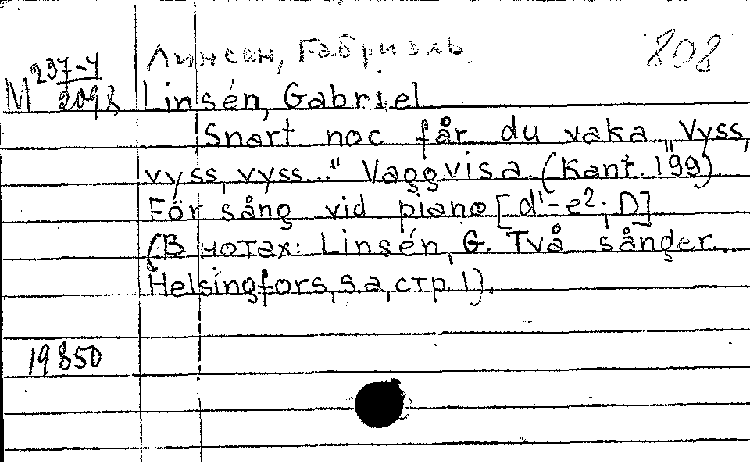 Линсен, Габриэль
808
М 237-4
2098
Linsén, Gabriel
Snart noc får du vaka „Vyss,
vyss, vyss..." Vaggvisa (Kant. 199)
För sång vid piano [d¹-e²; D]
(В нотах: Linsén, G. Två sånger.
Helsingfors, s.a, стр. 1).
19850